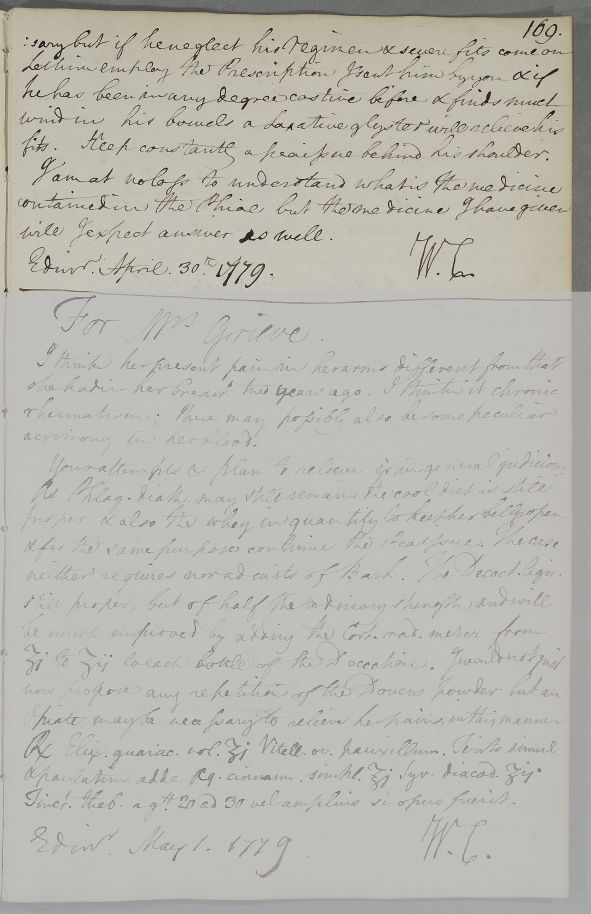 169.
:sary but if he neglect his Regimen & severe fits come on
Let him employ the Prescription I sent him by you & if
he has been in any degree costive before & finds much
wind in his bowels a Laxative glyster will relieve his
fits. Keep constantly a pea issue behind his shoulder.
I am at no loss to understand what is the medicine
contained in the Phial but the medicine I have given
will I expect answer as well.
Edinr. April. 30.th 1779. W. C.
For Mrs Grieve.
I think her present pain in her arms different from that
she had in her breast two years ago. I think it chronic
rheumatism; there may possibly also be some peculiar
acrimony in her blood.
Your attempts & plan to relieve is in general judicious
As Phlog. diath. may still remain the cool diet is still
proper & also the whey in quantity to keep her belly open
& for the same purpose continue the Pea Issue. The case
neither requires nor admits of Bark. The Decoct. lign.
still proper, but of half the ordinary strength and will
be much improved by adding the Cort. rad. mezer. from
ʒj to ʒij to each bottle of the Decoction. I would not just
now propose any repetition of the Dovers powder but an
Opiate may be necessary to relieve her pains in this manner
℞ Elix. guaiac. vol. ʒj Vitell. ov. pauxillum. Tentis simul
& paulatim adde Aq. cinnam. simpl. ℥j Syr. diacod. ʒij
Tinct. theb. a gtt 20 ad 30 vel amplius si opus fuerit.
Edinr. May 1. 1779. W. C.